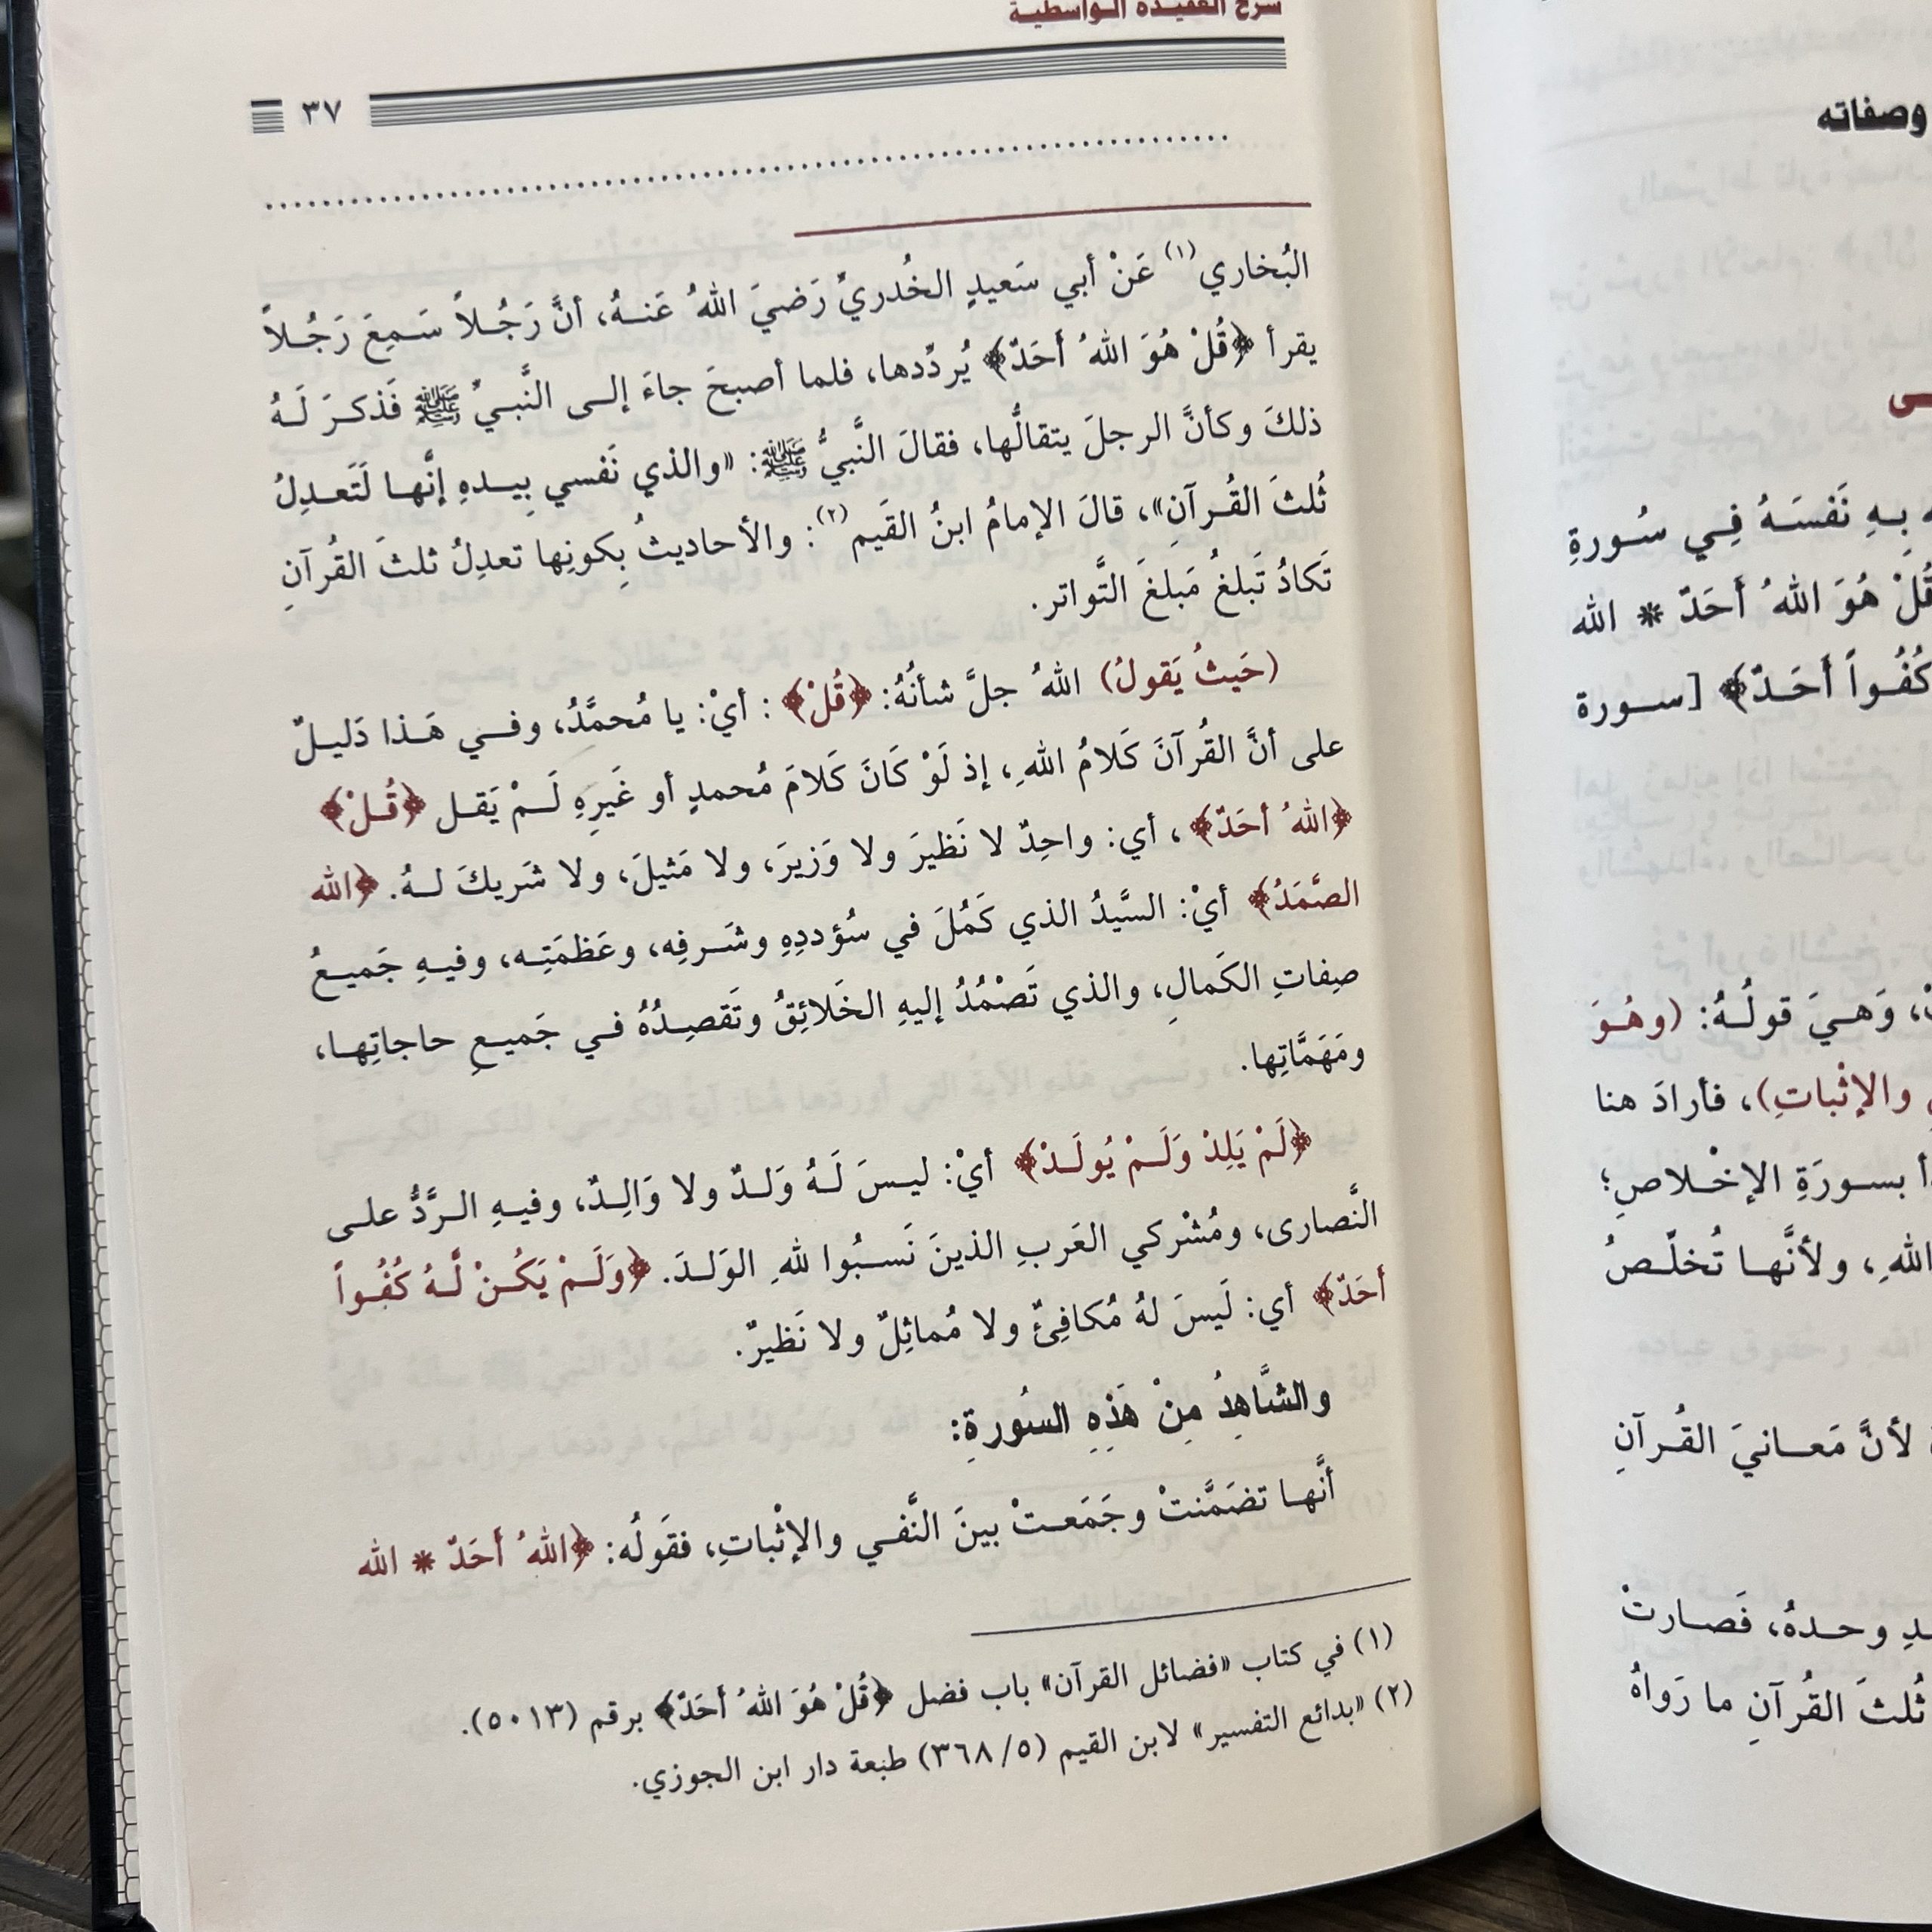 شرح العقيدة الواسطية
٣٧
البُخاري(١) عَنْ أبي سَعيدٍ الخُدريِّ رَضيَ اللهُ عَنهُ، أنَّ رَجُلاً سَمِعَ رَجُلاً
يقرأ ﴿قُلْ هُوَ اللهُ أَحَدٌ﴾ يُردِّدها، فلما أصبحَ جاءَ إلى النَّبيِّ ﷺ فَذكرَ لَهُ
ذلكَ وكأنَّ الرجلَ يتقالُّها، فقالَ النَّبيُّ ﷺ: «والذي نَفسي بِيدهِ إنَّها لَتَعدِلُ
ثُلثَ القُرآنِ»، قالَ الإمامُ ابنُ القَيم(٢): والأحاديثُ بِكونِها تعدِلُ ثلثَ القُرآنِ
تَكَادُ تَبلغُ مَبلغَ التَّواتر.
(حَيثُ يَقولُ) اللهُ جلَّ شأنُهُ: ﴿قُلْ﴾ : أيْ: يا مُحمَّدُ، وفي هَذا دَليلٌ
على أنَّ القُرآنَ كَلامُ اللهِ، إذ لَوْ كَانَ كَلامَ مُحمدٍ أو غَيرِهِ لَمْ يَقل ﴿قُلْ﴾
﴿اللهُ أحَدٌ﴾ ، أي: واحِدٌ لا نَظيرَ ولا وَزيرَ، ولا مَثيلَ، ولا شَريكَ لهُ. ﴿الله
الصَّمَدُ﴾ أيْ: السَّيدُ الذي كَمُلَ في سُؤددِهِ وشَرفِه، وعَظمَتِه، وفيهِ جَميعُ
صِفاتِ الكَمالِ، والذي تَصْمُدُ إليهِ الخَلائِقُ وتَقصِدُهُ في جَميعِ حاجاتِها،
ومَهَمَّاتِها.
﴿لَمْ يَلِدْ وَلَمْ يُولَدْ﴾ أيْ: ليسَ لَهُ وَلدٌ ولا وَالِدٌ، وفيهِ الرَّدُّ على
النَّصارى، ومُشْركي العَربِ الذينَ نَسبُوا للهِ الوَلدَ. ﴿وَلَمْ يَكُنْ لَّهُ كُفُواً
أحَدٌ﴾ أي: لَيسَ لهُ مُكافِئٌ ولا مُماثِلٌ ولا نَظيرٌ.
والشَّاهِدُ مِنْ هَذِهِ السُورةِ:
أنَّها تضَمَّنتْ وجَمَعتْ بينَ النَّفي والإثْباتِ، فقَولُه: ﴿اللهُ أحَدٌ * الله
(١) في كتاب «فضائل القرآن» باب فضل ﴿قُلْ هُوَ اللهُ أَحَدٌ﴾ برقم (٥٠١٣).
(٢) «بدائع التفسير» لابن القيم (٥/ ٣٦٨) طبعة دار ابن الجوزي.
وصفاته
بِهِ نَفسَهُ فِي سُورةِ
قُلْ هُوَ اللهُ أَحَدٌ * الله
كُفُواً أَحَدٌ﴾ [سورة
وَهيَ قولُهُ: (وهُوَ
والإثْباتِ)، فأرادَ هنا
بسورَةِ الإخْلاصِ؛
اللهِ، ولأنَّها تُخلّصُ
لأنَّ مَعانيَ القُرآنِ
وحدهُ، فَصارتْ
ثُلثَ القُرآنِ ما رَواهُ